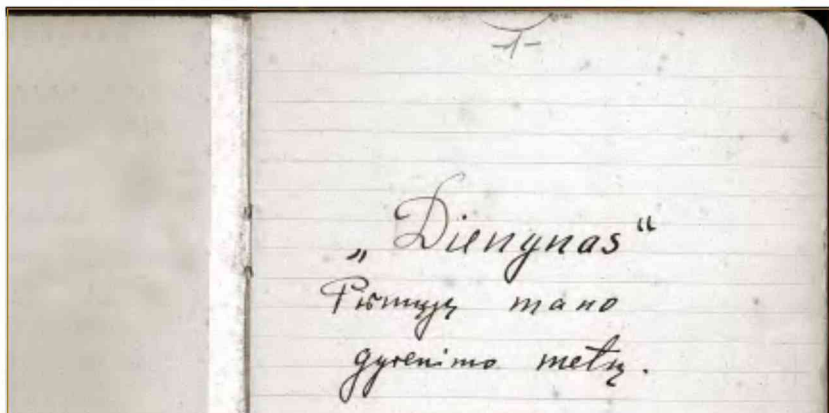 -1-
„Dienynas“
Pirmųjų mano
gyvenimo metų.